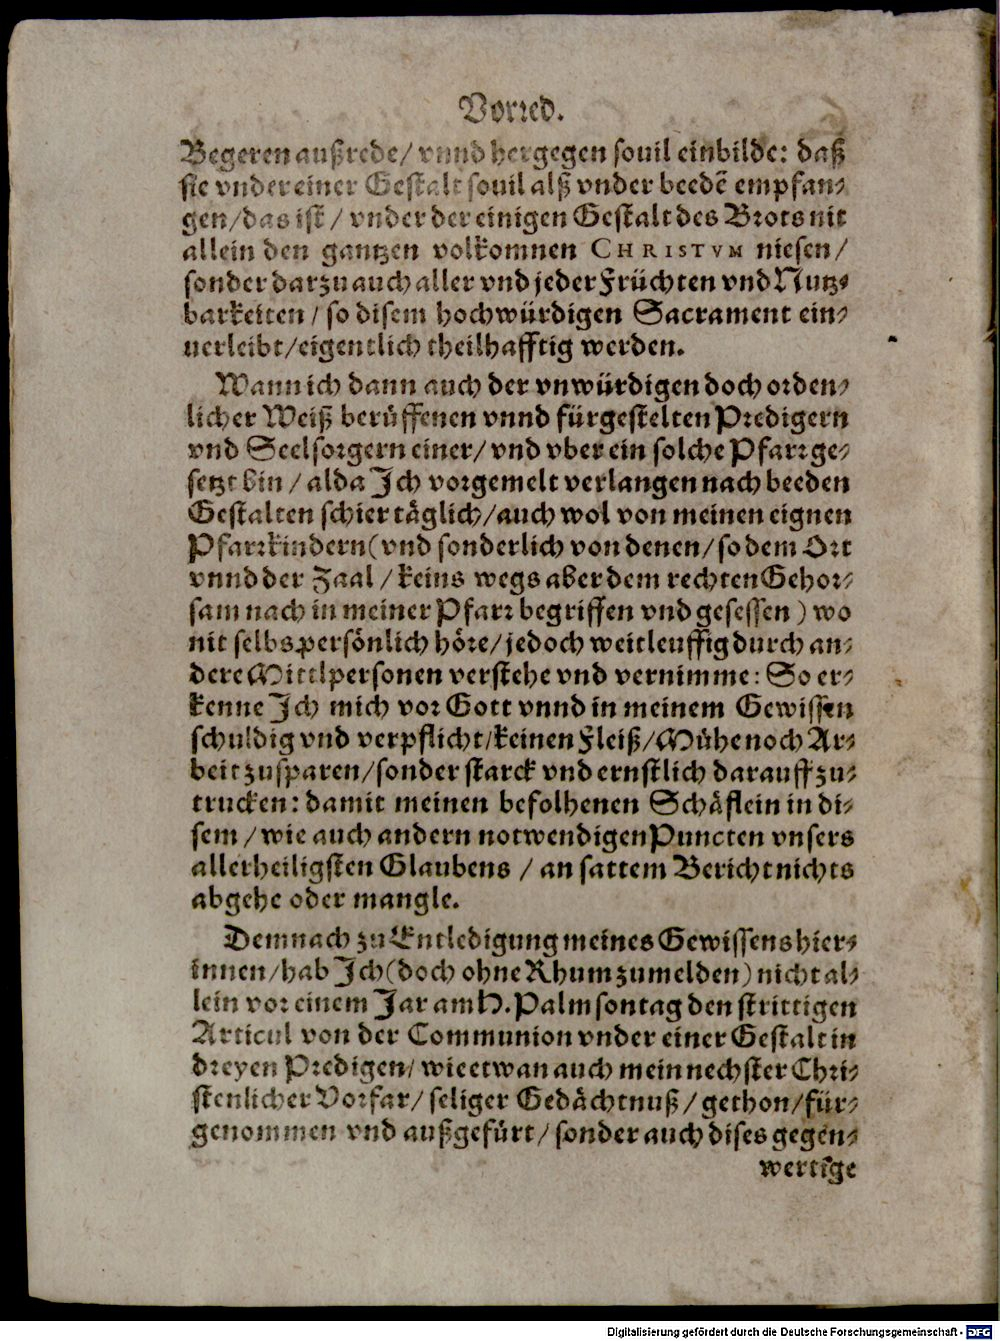 Vorred.
Begeren außrede/ vnnd hergegen souil einbilde: daß
sie vnder einer Gestalt souil alß vnder beedē empfan-
gen/das ist/ vnder der einigen Gestalt des Brots nit
allein den gantzen volkomnen CHRISTVM niesen/
sonder darzu auch aller vnd jeder Früchten vnd Nutz-
barkeiten/ so disem hochwürdigen Sacrament ein-
uerleibt/eigentlich theilhafftig werden.
Wann ich dann auch der vnwürdigen doch orden-
licher Weiß berůffenen vnnd fürgestelten Predigern
vnd Seelsorgern einer/ vnd vber ein solche Pfarr ge-
setzt bin/ alda Jch vorgemelt verlangen nach beeden
Gestalten schier täglich/auch wol von meinen eignen
Pfarrkindern (vnd sonderlich von denen/ so dem Ort
vnnd der Zaal/ keins wegs aber dem rechten Gehor-
sam nach in meiner Pfarr begriffen vnd gesessen) wo
nit selbs persönlich höre/ jedoch weitleuffig durch an-
dere Mittlpersonen verstehe vnd vernimme: So er-
kenne Jch mich vor Gott vnnd in meinem Gewissen
schuldig vnd verpflicht/keinen Fleiß/Mühe noch Ar-
beit zusparen/sonder starck vnd ernstlich darauff zu-
trucken: damit meinen befolhenen Schäflein in di-
sem/ wie auch andern notwendigen Puncten vnsers
allerheiligsten Glaubens/ an sattem Bericht nichts
abgehe oder mangle.
Demnach zu Entledigung meines Gewissens hier-
innen/hab Jch (doch ohne Rhum zumelden) nicht al-
lein vor einem Jar am H. Palmsontag den strittigen
Articul von der Communion vnder einer Gestalt in
dreyen Predigen/ wie etwan auch mein nechster Chri-
stenlicher Vorfar/ seliger Gedächtnuß/ gethon/für-
genommen vnd außgefürt/ sonder auch dises gegen-
wertige
Digitalisierung gefördert durch die Deutsche Forschungsgemeinschaft - DFG